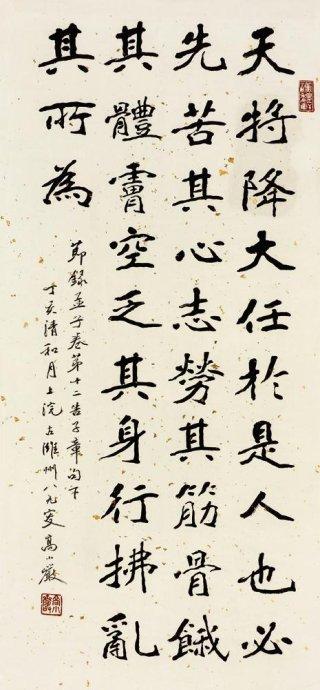 天將降大任於是人也必
先苦其心志勞其筋骨餓
其體膚空乏其身行拂亂
其所為
節錄孟子卷第十二告子章句下
丁亥清和月上浣古睢州八九叟高小巖